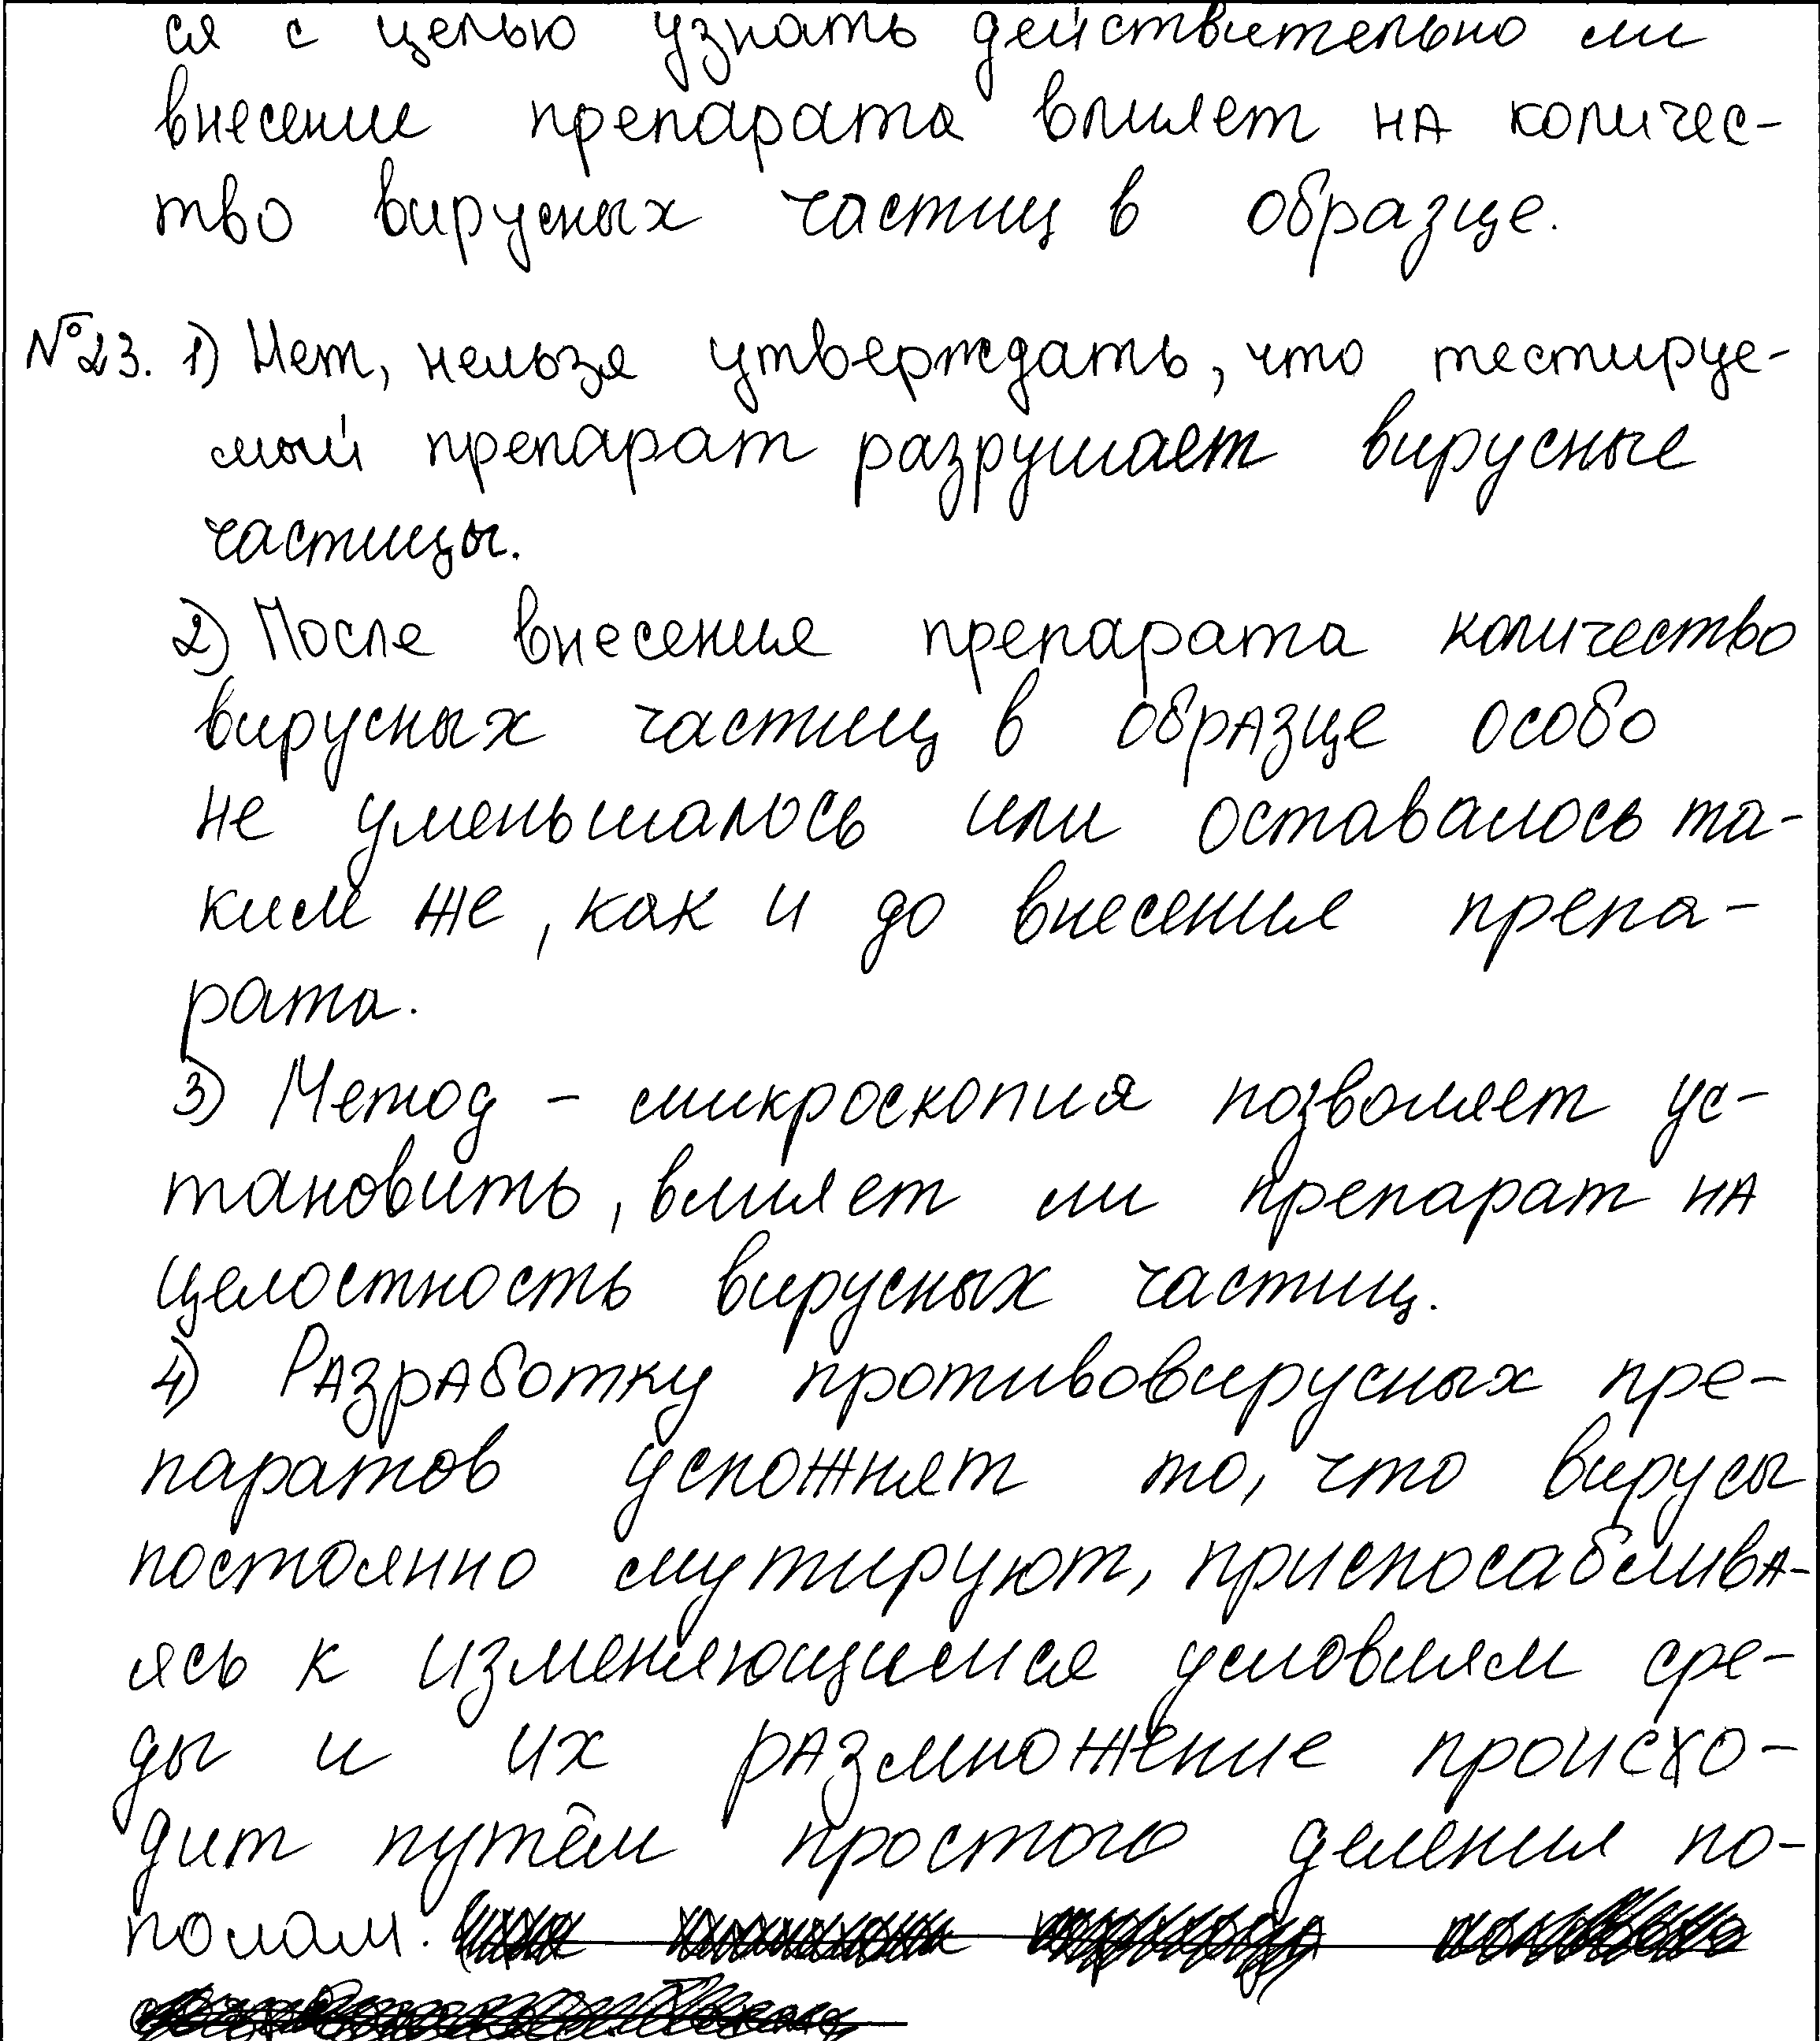 ся с целью узнать действительно ли
внесение препарата влияет на количес-
тво вирусных частиц в образце.
№23. 1) Нет, нельзя утверждать, что тестируе-
мый препарат разрушает вирусные
частицы.
2) После внесения препарата количество
вирусных частиц в образце особо
не уменьшалось или оставалось та-
ким же, как и до внесения препа-
рата.
3) Метод - микроскопия позволяет ус-
тановить, влияет ли препарат на
целостность вирусных частиц.
4) Разработку противовирусных пре-
паратов усложнят то, что вирусы
постоянно мутируют, приспосаблива-
ясь к изменяющимся условиям сре-
ды и их размножение происхо-
дит путём простого деления по-
полам.